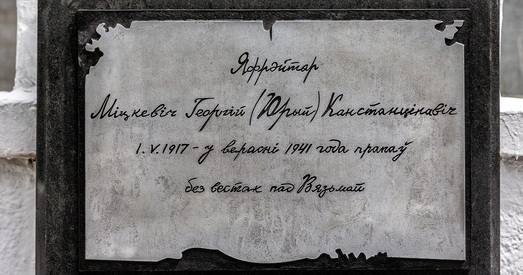 Яфрэйтар
Міцкевіч Георгій (Юрый) Канстанцінавіч
1.V.1917 - у верасні 1941 года прапаў
без вестак пад Вязьмай